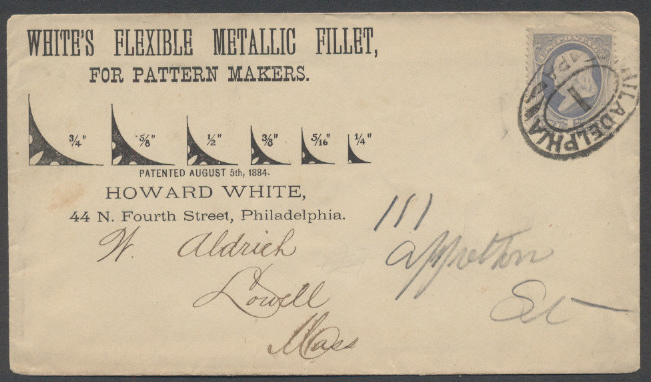 WHITE'S FLEXIBLE METALLIC FILLET,
FOR PATTERN MAKERS.
3/4" 5/8" 1/2" 3/8" 5/16" 1/4"
PATENTED AUGUST 5th, 1884.
HOWARD WHITE,
44 N. Fourth Street, Philadelphia.
W. Aldrich
Lowell
Mass
111
Appleton
St
PHILADELPHIA